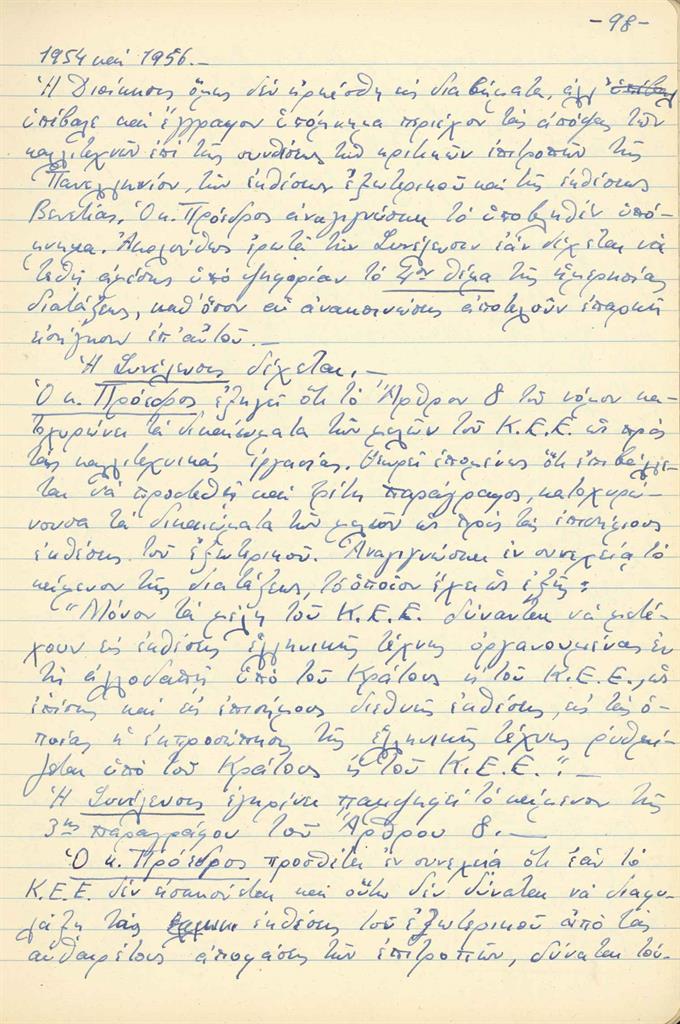 -98-
1954 καὶ 1956.—
Ἡ Διοίκησις ὅμως δὲν ἠρκέσθη εἰς διαβήματα, ἀλλ'
ὑπέβαλε καὶ ἔγγραφον ὑπόμνημα περιέχον τὰς ἀπόψεις τῶν
καλλιτεχνῶν ἐπὶ τῆς συνθέσεως τῶν κριτικῶν ἐπιτροπῶν τῆς
Πανελληνίου, τῶν ἐκθέσεων ἐξωτερικοῦ καὶ τῆς ἐκθέσεως
Βενετίας. Ὁ κ. Πρόεδρος ἀναγιγνώσκει τὸ ὑποβληθὲν ὑπό-
μνημα. Ἀκολούθως ἐρωτᾷ τὴν Συνέλευσιν ἐὰν δέχεται νὰ
τεθῇ ἀμέσως ὑπὸ ψηφορίαν τὸ 4ον θέμα τῆς ἡμερησίας
διατάξεως, καθ' ὅσον αἱ ἀνακοινώσεις ἀποτελοῦν ἐπαρκῆ
εἰσήγησιν ἐπ' αὐτοῦ.—
Ἡ Συνέλευσις δέχεται.—
Ὁ κ. Πρόεδρος ἐξηγεῖ ὅτι τὸ Ἄρθρον 8 τοῦ νόμου κα-
τοχυρώνει τὰ δικαιώματα τῶν μελῶν τοῦ Κ.Ε.Ε. ὡς πρὸς
τὰς καλλιτεχνικὰς ἐργασίας. Θεωρεῖ ἑπομένως ὅτι ἐπιβάλλε-
ται νὰ προστεθῇ καὶ τρίτη παράγραφος, κατοχυρώ-
νουσα τὰ δικαιώματα τῶν μελῶν ὡς πρὸς τὰς ἐπισήμους
ἐκθέσεις τοῦ ἐξωτερικοῦ. Ἀναγιγνώσκει ἐν συνεχείᾳ τὸ
κείμενον τῆς διατάξεως, τὸ ὁποῖον ἔχει ὡς ἑξῆς:
"Μόνον τὰ μέλη τοῦ Κ.Ε.Ε. δύνανται νὰ μετέ-
χουν εἰς ἐκθέσεις ἑλληνικῆς τέχνης ὀργανουμένας ἐν
τῇ ἀλλοδαπῇ ὑπὸ τοῦ Κράτους ἢ τοῦ Κ.Ε.Ε., ὡς
ἐπίσης καὶ εἰς ἐπισήμους διεθνεῖς ἐκθέσεις, εἰς τὰς ὁ-
ποίας ἡ ἐκπροσώπησις τῆς ἑλληνικῆς τέχνης ρυθμί-
ζεται ὑπὸ τοῦ Κράτους ἢ τοῦ Κ.Ε.Ε.".—
Ἡ Συνέλευσις ἐγκρίνει παμψηφεὶ τὸ κείμενον τῆς
3ης παραγράφου τοῦ Ἄρθρου 8.—
Ὁ κ. Πρόεδρος προσθέτει ἐν συνεχείᾳ ὅτι ἐὰν τὸ
Κ.Ε.Ε. δὲν εἰσακούεται καὶ οὕτω δὲν δύναται νὰ διαφυ-
λάξῃ τὰς ἐκθέσεις τοῦ ἐξωτερικοῦ ἀπὸ τὰς
αὐθαιρέτους ἀποφάσεις τῶν ἐπιτροπῶν, δύναται τοὐ-